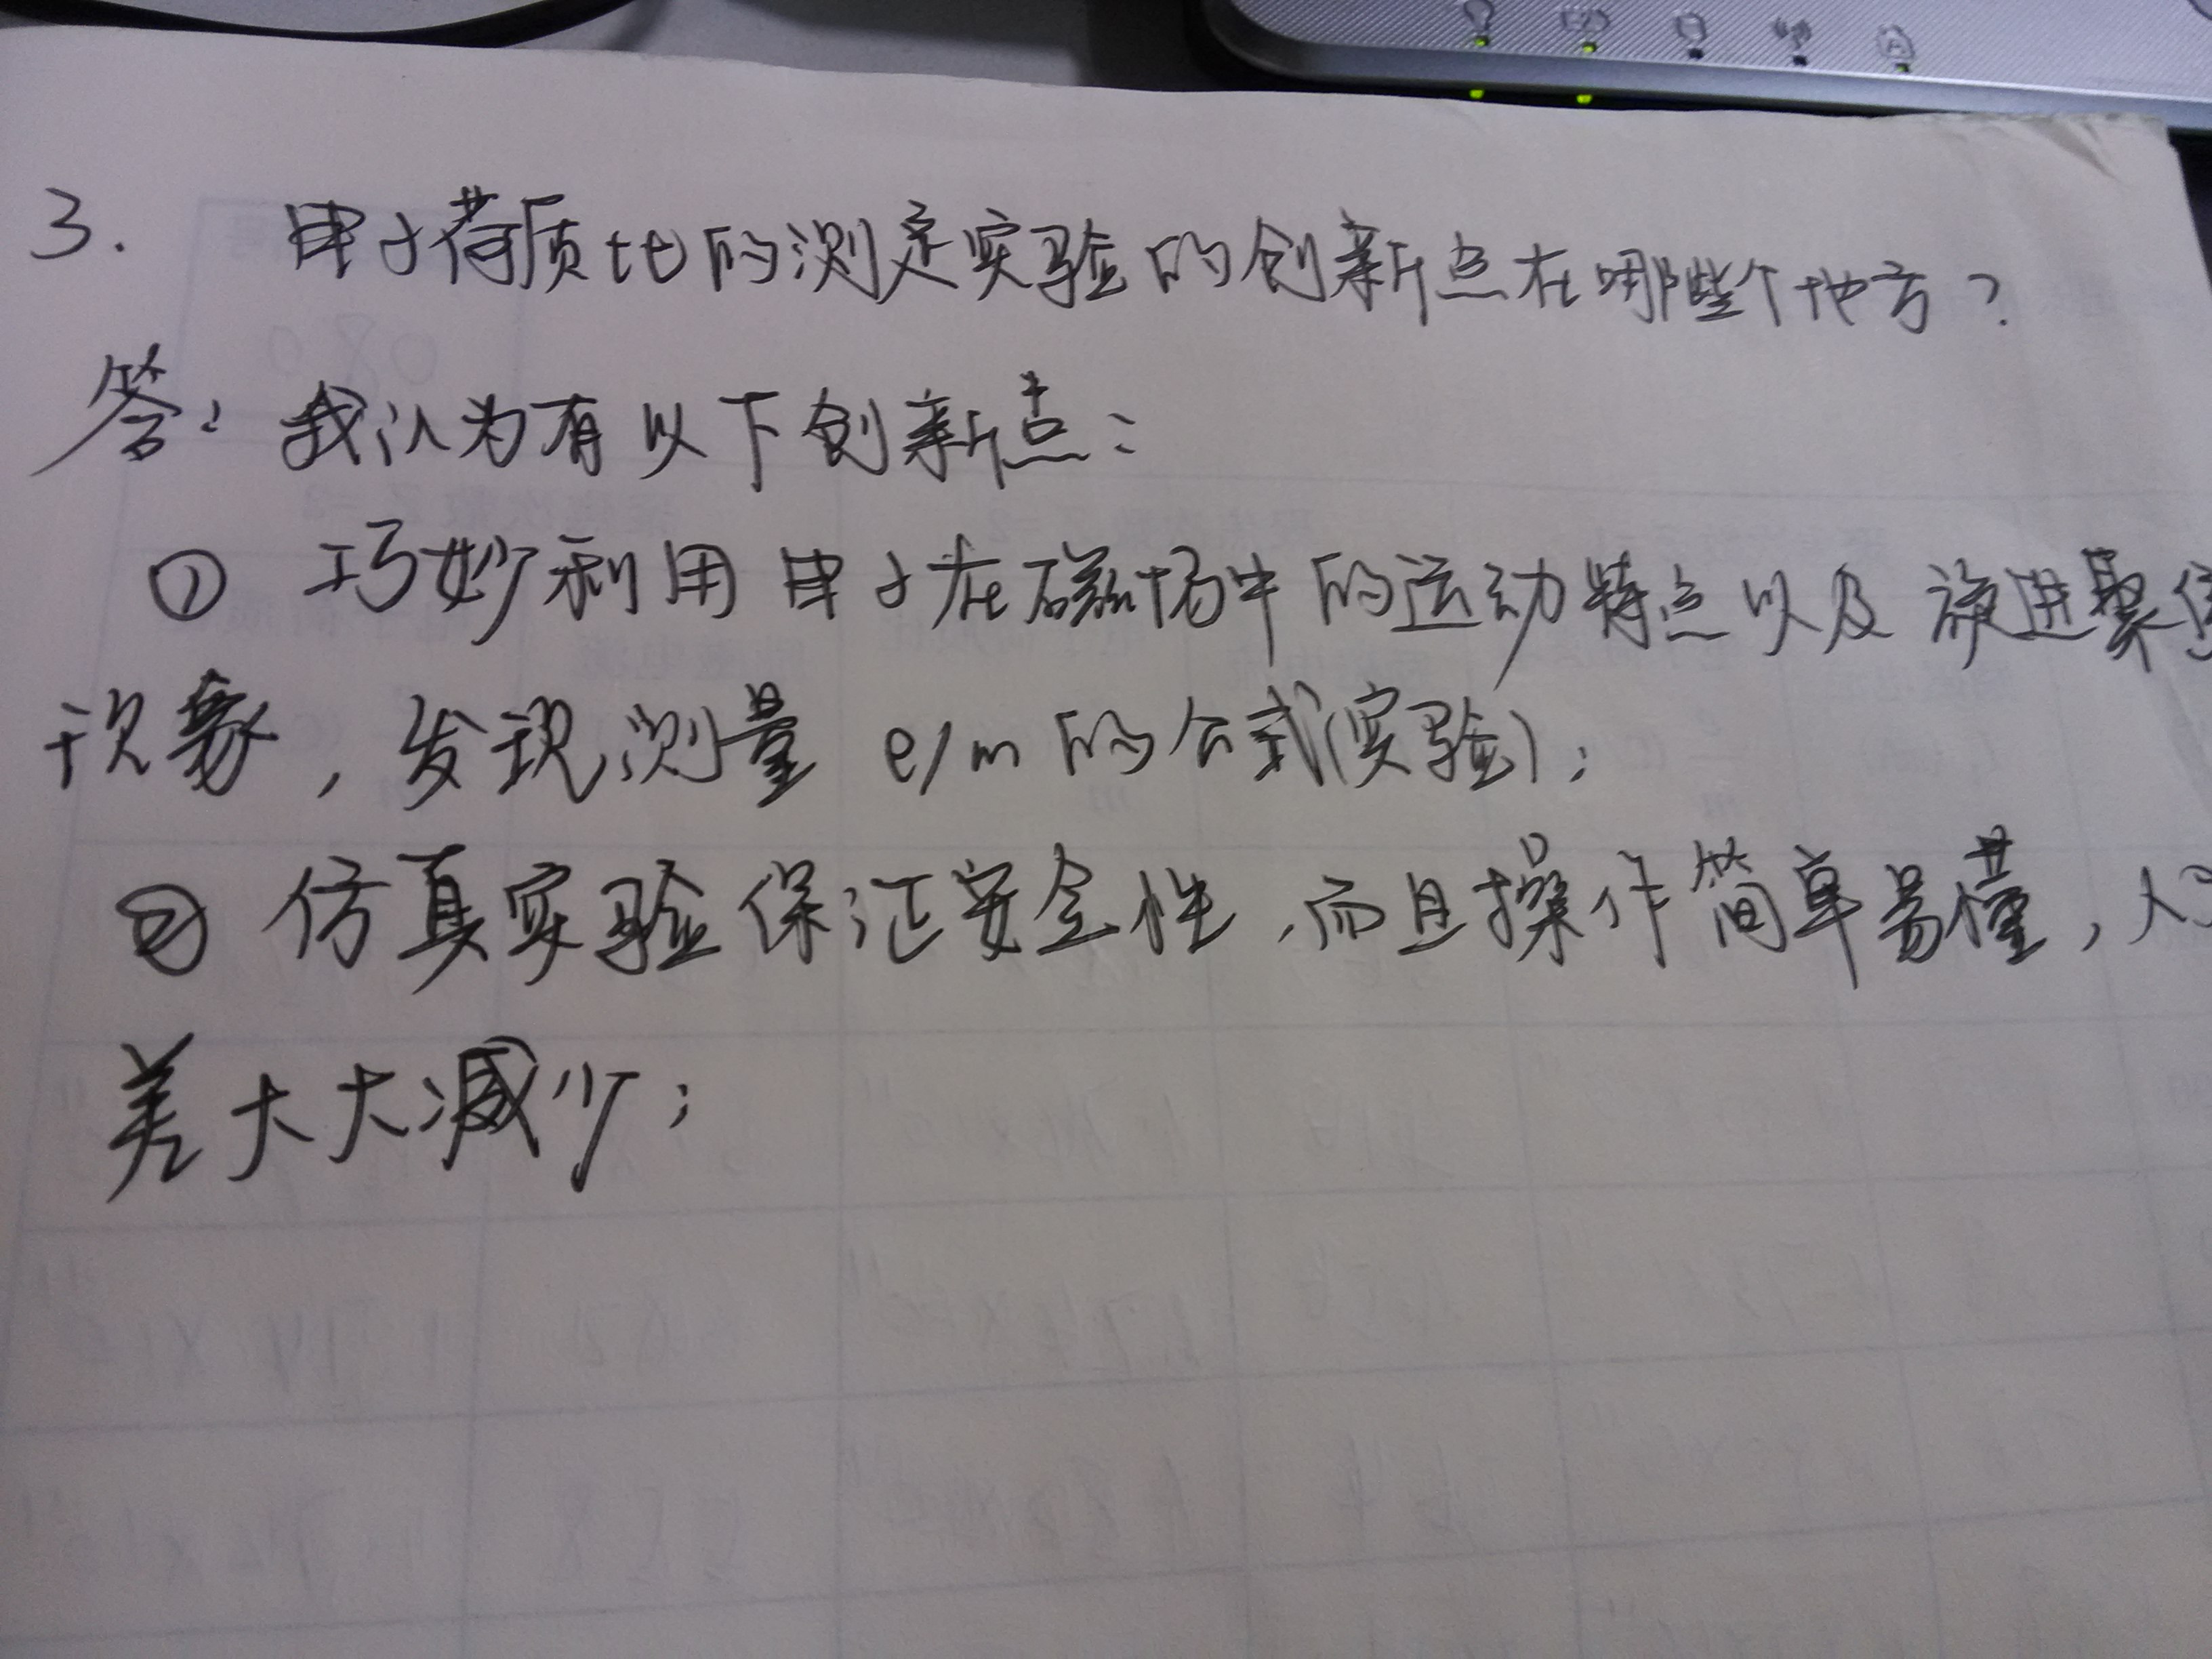 3. 电子荷质比的测定实验的创新点在哪些个地方?
答: 我认为有以下创新点:
① 巧妙利用电子在磁场中的运动特点以及旋进聚焦
现象, 发现测量 e/m 的公式(实验);
② 仿真实验保证安全性,而且操作简单易懂,
差大大减少;